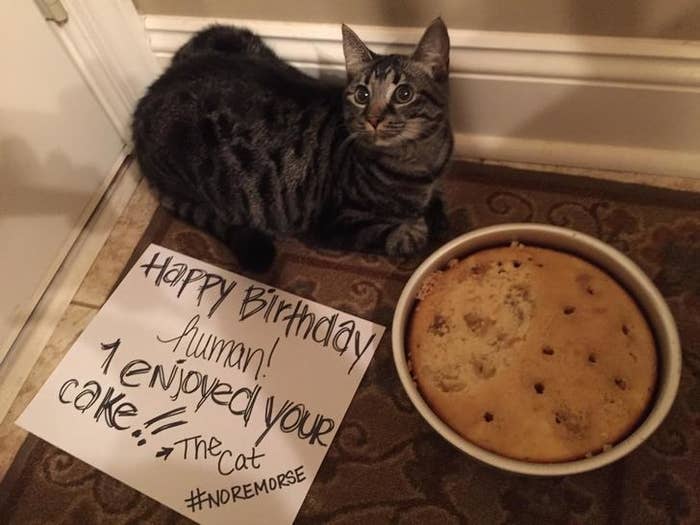 HAPPY Birthday
human!
1 enjoyed your
cake!!
The cat
#NOREMORSE